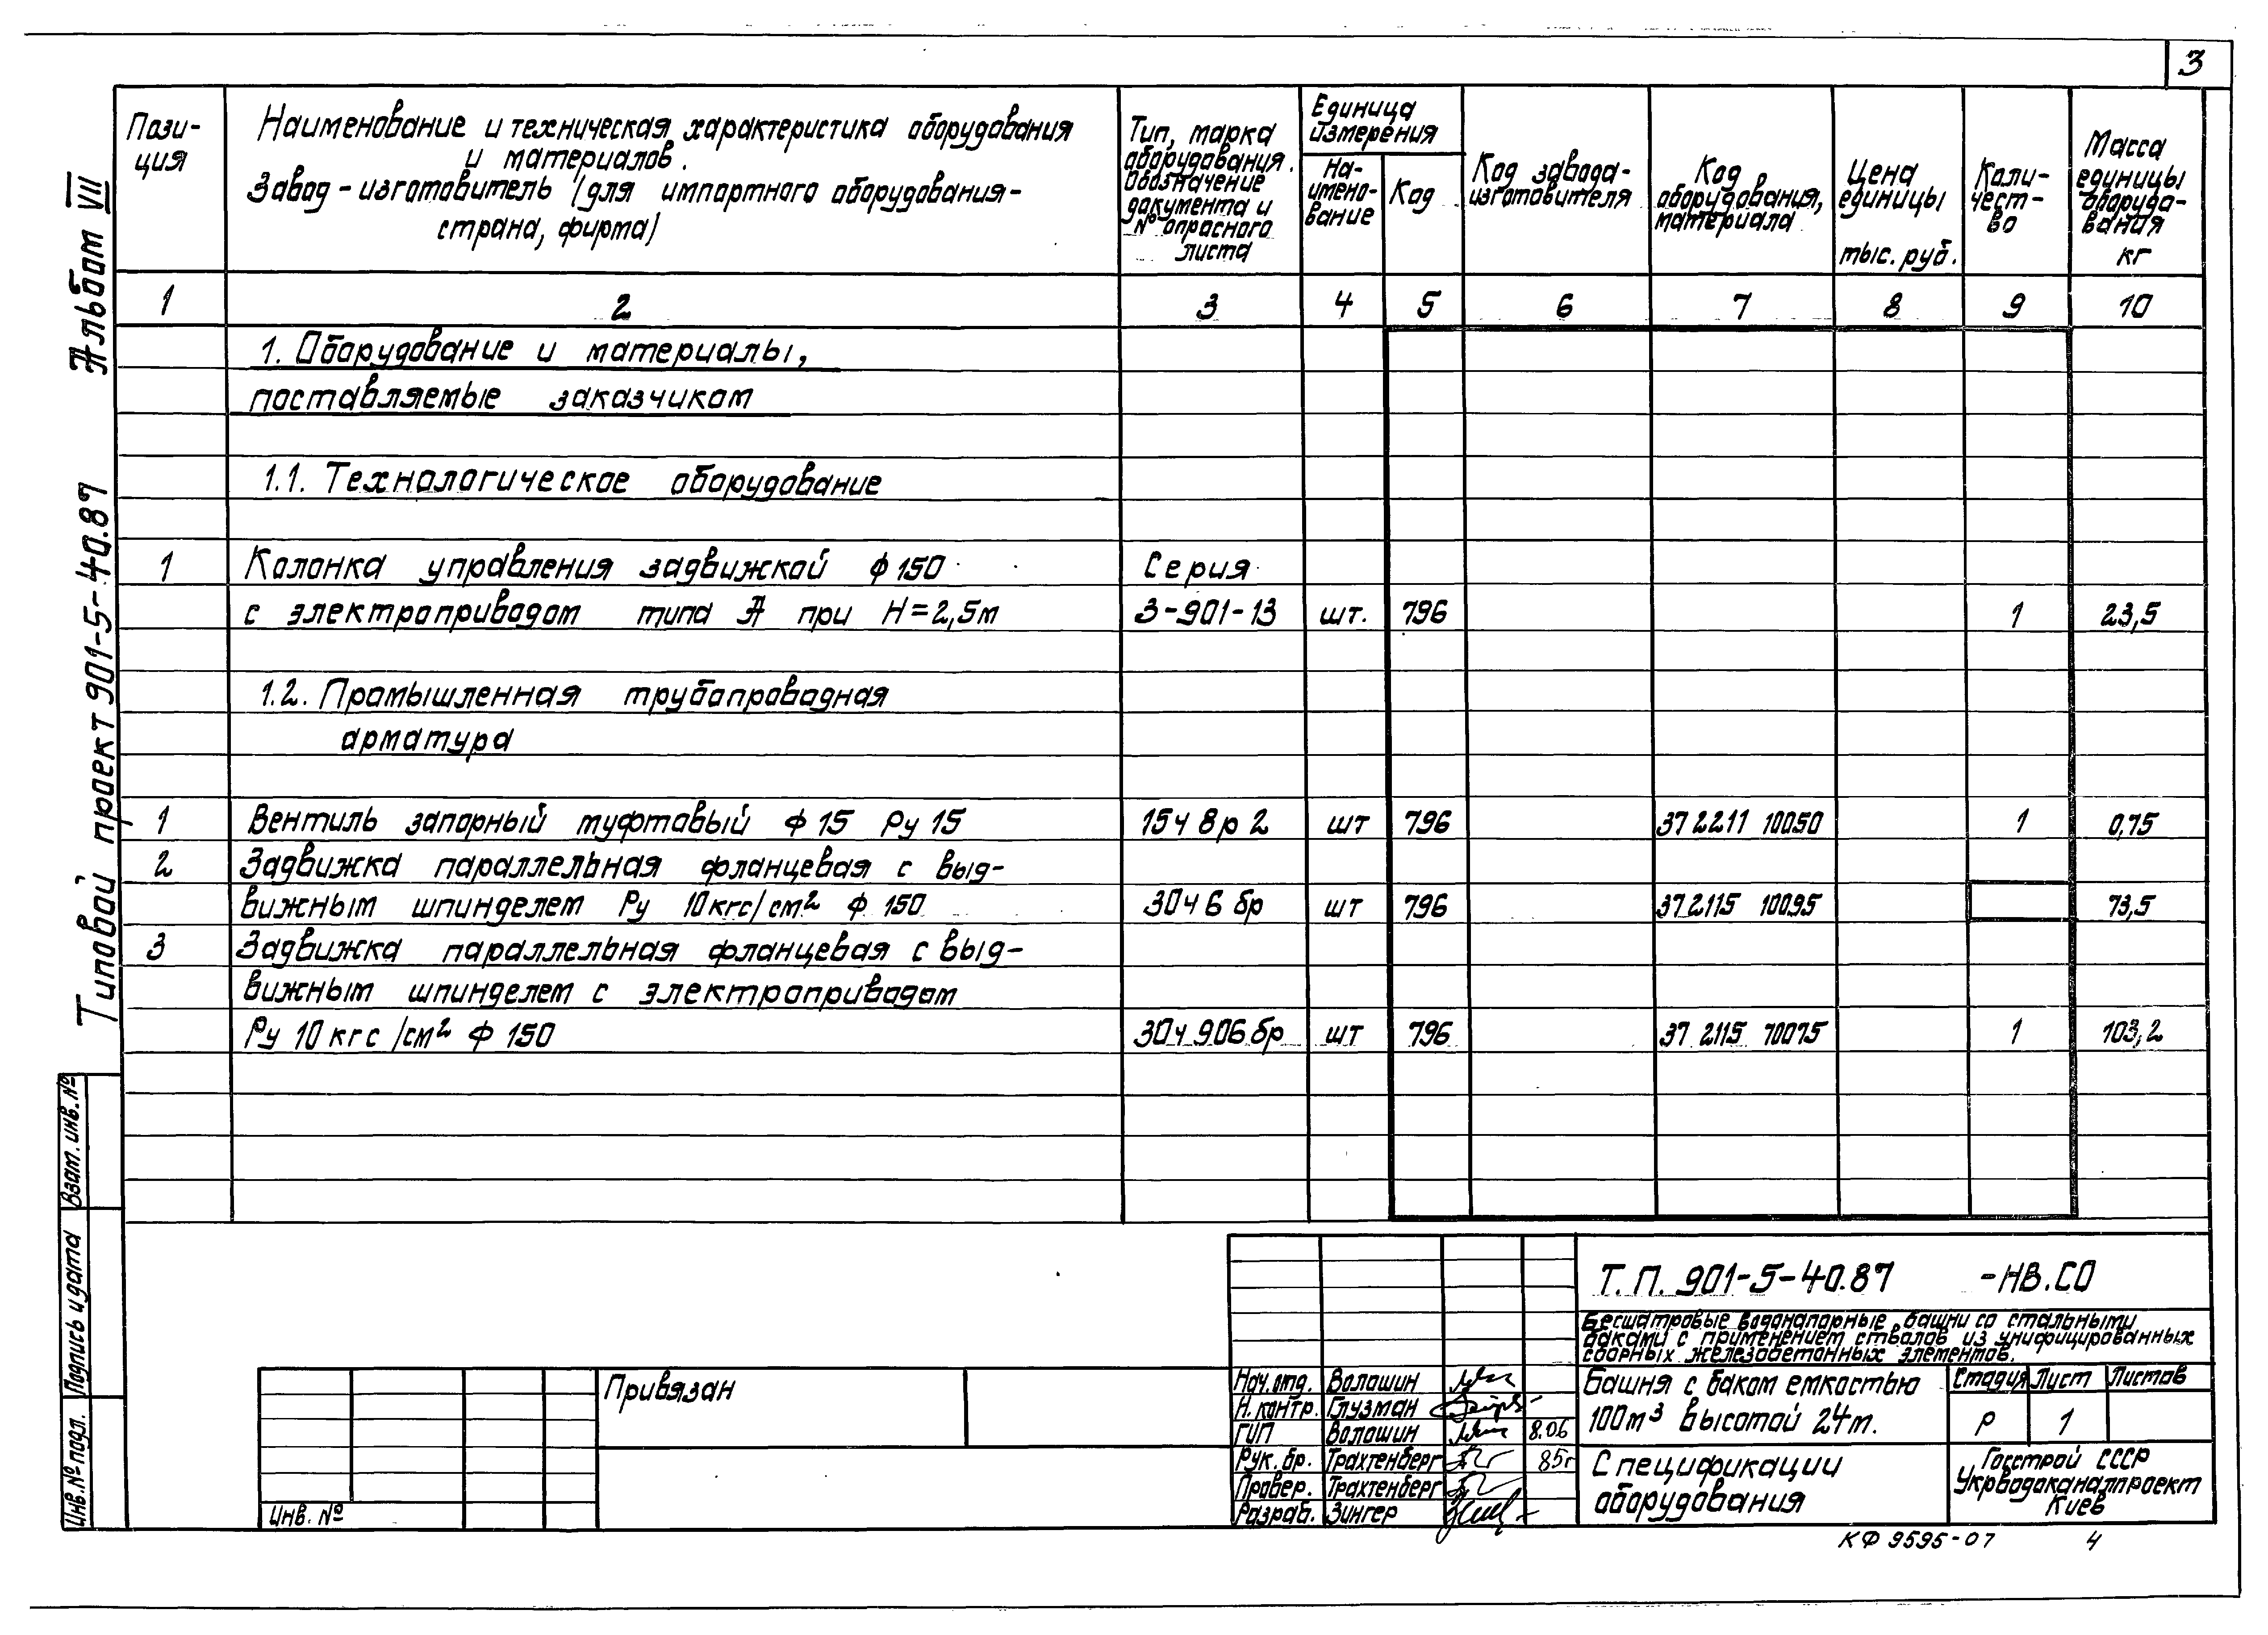 3
Альбом VII
Типовой проект 901-5-40.87
Взам. инв. №
Подпись и дата
Инв. № подл.
Пози-
ция
Наименование и техническая характеристика оборудования
и материалов.
Завод-изготовитель (для импортного оборудования-
страна, фирма)
Тип, марка
оборудования.
Обозначение
документа и
№ опросного
листа
Единица
измерения
На-
имено-
вание
Код
Код завода-
изготовителя
Код
оборудования,
материала
Цена
единицы
тыс. руб.
Коли-
чест-
во
Масса
единицы
оборудо-
вания
кг
1 2 3 4 5 6 7 8 9 10
1. Оборудование и материалы,
поставляемые заказчиком
1.1. Технологическое оборудование
1 Колонка управления задвижкой ф 150 Серия
с электроприводом типа А при Н=2,5м 3-901-13 шт. 796 1 23,5
1.2. Промышленная трубопроводная
арматура
1 Вентиль запорный муфтовый ф 15 Ру 15 15ч 8р 2 шт 796 37 2211 10050 1 0,75
2 Задвижка параллельная фланцевая с выд-
вижным шпинделем Ру 10кгс/см² ф 150 30ч 6 бр шт 796 37 2115 10095 73,5
3 Задвижка параллельная фланцевая с выд-
вижным шпинделем с электроприводом
Ру 10 кгс/см² ф 150 30ч 906 бр шт 796 37 2115 70075 1 103,2
Т.П. 901-5-40.87 -НВ.СО
Бесшатровые водонапорные башни со стальными
баками с применением стволов из унифицированных
сборных железобетонных элементов.
Привязан
Инв. №
Нач. отд. Волошин
Н. контр. Глузман
ГИП Волошин 8.06
Рук. бр. Трахтенберг 85г
Провер. Трахтенберг
Разраб. Зингер
Башня с баком емкостью
100м³ высотой 24м.
Стадия Лист Листов
Р 1
Спецификации
оборудования
Госстрой СССР
Укрводоканалпроект
Киев
КФ 9595-07 4